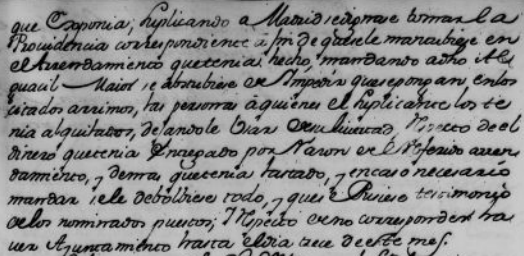 que Exponia; suplicando a Madrid se dignase tomar la
Providencia correspondiente á fin de que se le mantubiese en
el Arrendamiento que tenia hecho, mandando adho Al
guacil Maior se abstubiese de Impedir que se pongan en los
citados arrimos, las personas á quienes el suplicante los te
nia alquilados, dejandole Usar de su livertad, Respecto de el
dinero que tenia Entregado por Razon de el Referido arren
damiento, y demas que tenia gastado, y en caso necesario
mandar se le debolbiese todo, y que se Pusiese testimonio
de los nominados puestos; Y Respecto de no corresponder ha
ver Ayuntamiento hasta el dia trece de este mes.